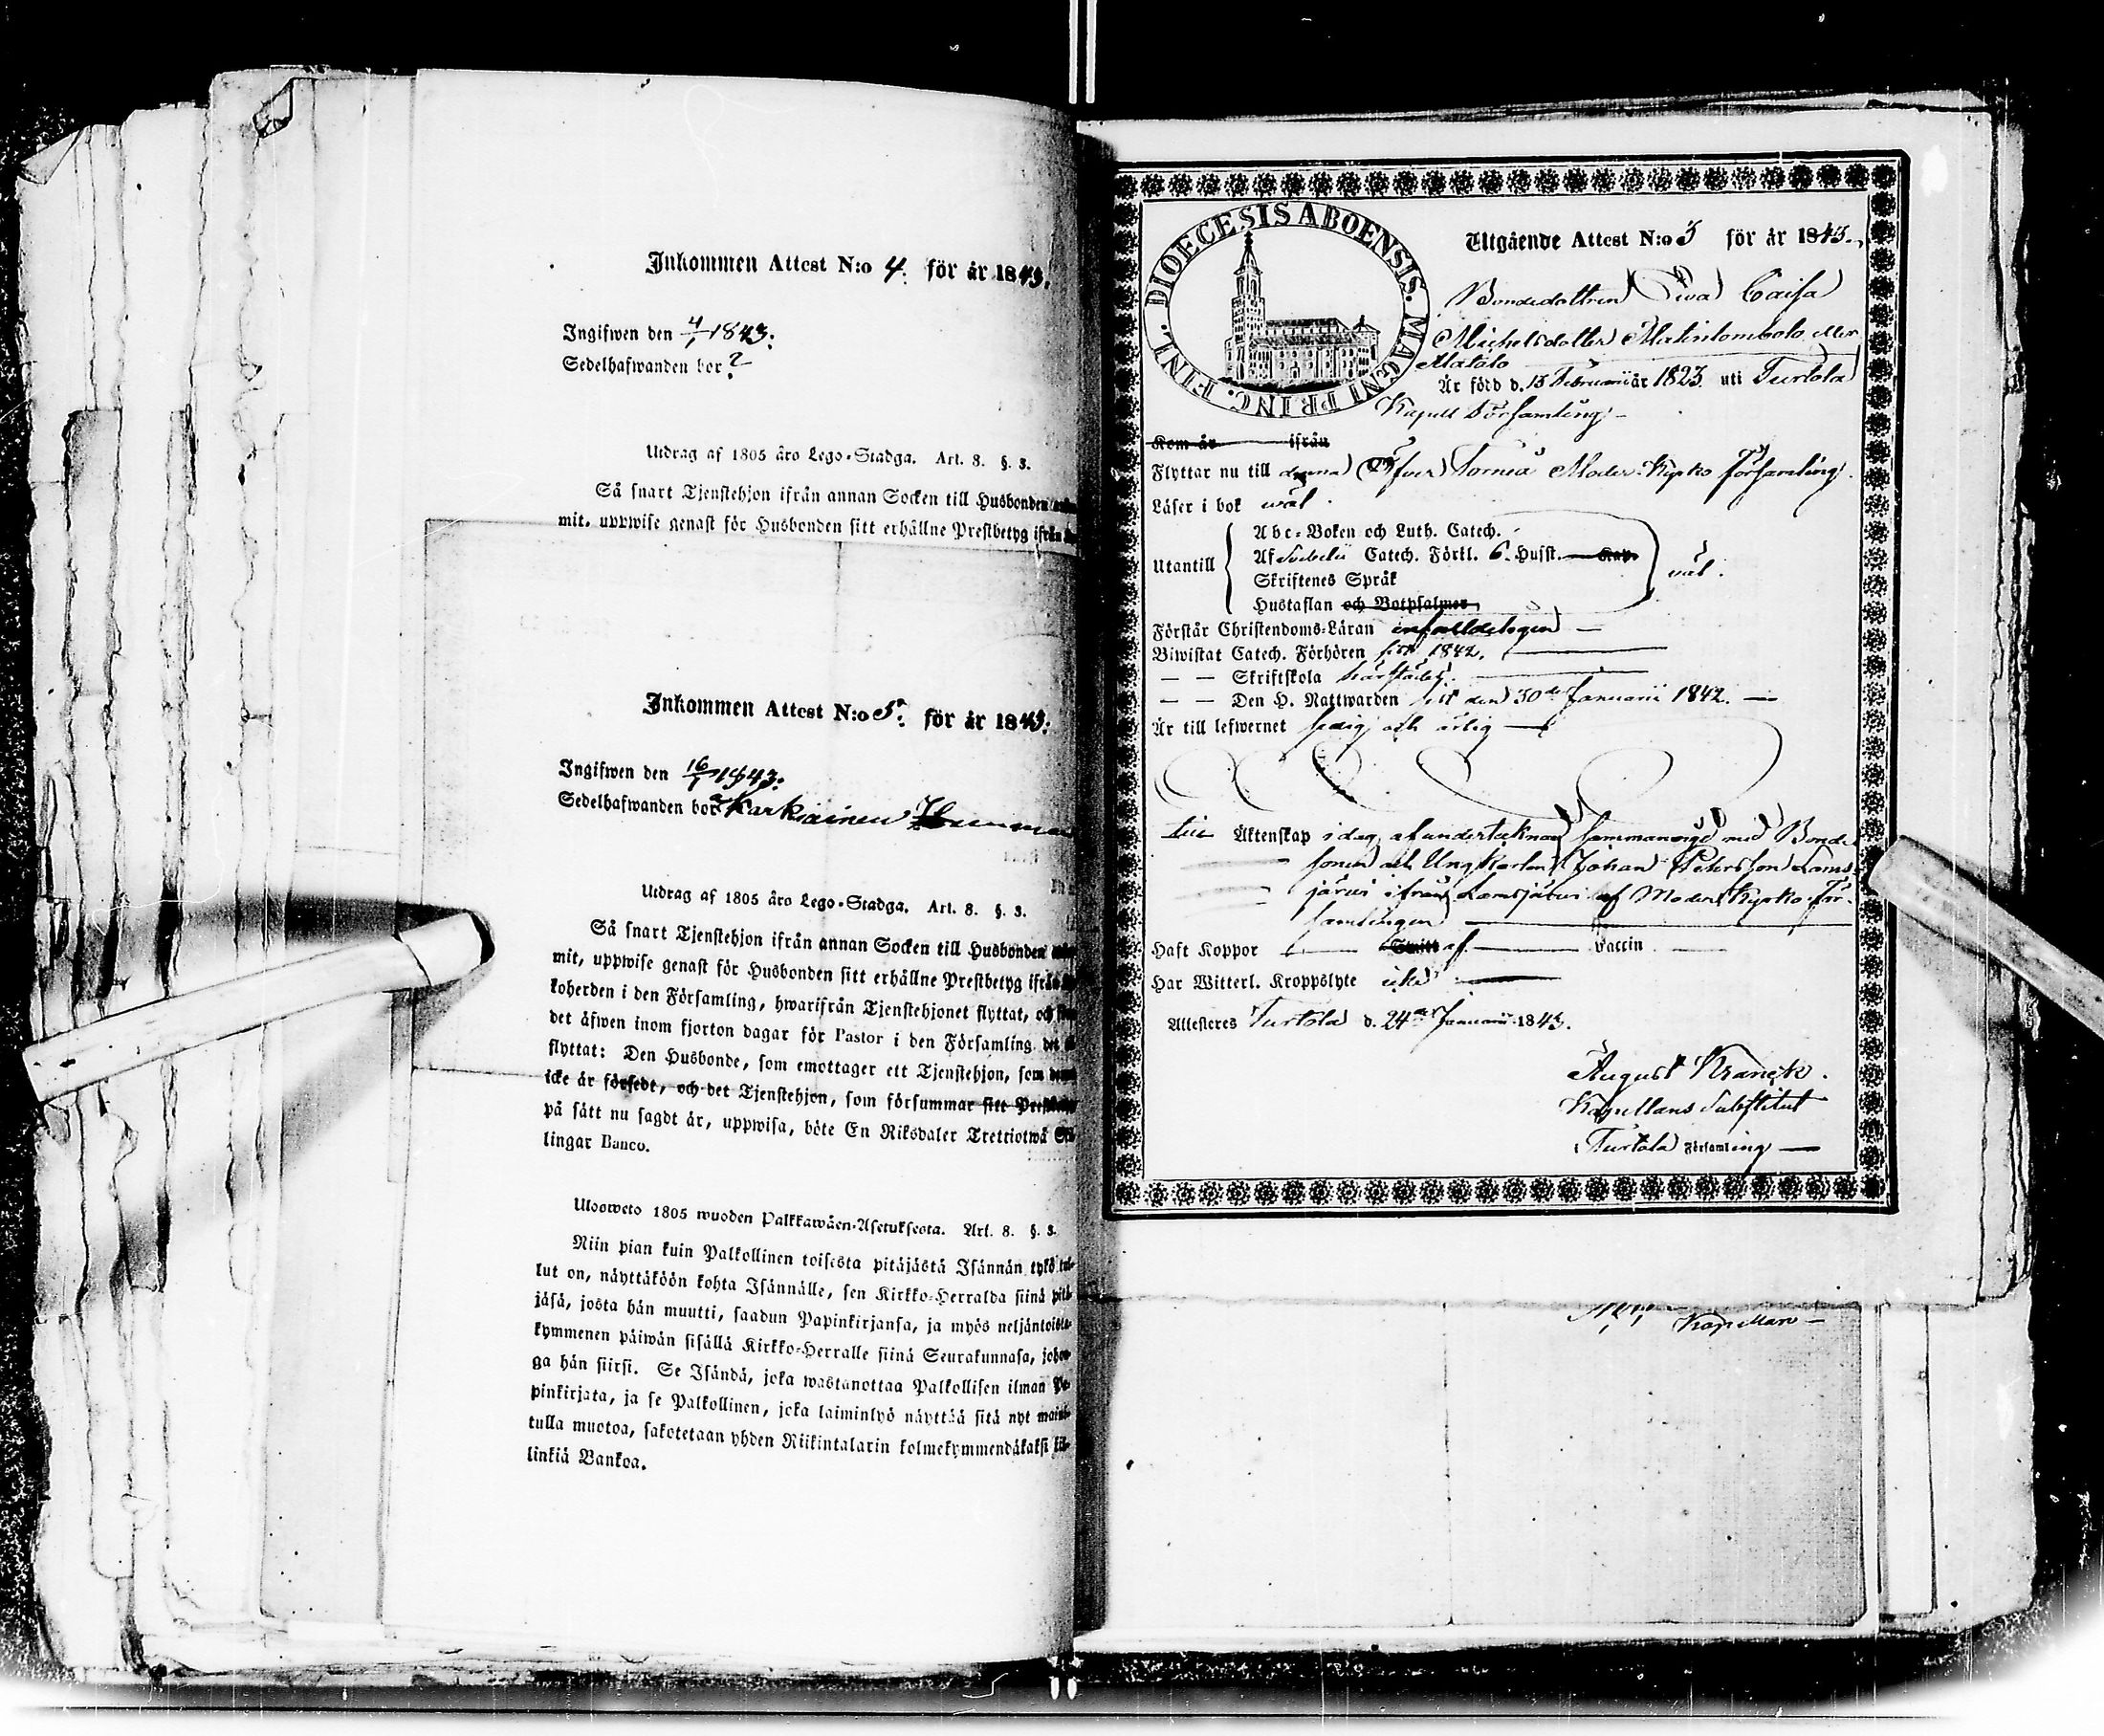 Inkommen Attest N:o 4. för år 1843.
Ingifwen den 4/1 1843.
Sedelhafwanden bor?
Utdrag af 1805 års Lego-Stadga. Art. 8. §. 3.
Så snart Tjenstehjon ifrån annan Socken till Husbonden
mit, uppwise genast för Husbonden sitt erhållne Prestbetyg ifrån
Inkommen Attest N:o 5. för år 1843.
Ingifwen den 16/1 1843.
Sedelhafwanden bor Karkiainen
Utdrag af 1805 års Lego-Stadga. Art. 8. §. 3.
Så snart Tjenstehjon ifrån annan Socken till Husbonden
mit, uppwise genast för Husbonden sitt erhållne Prestbetyg ifrån
koherden i den Församling, hwarifrån Tjenstehjonet flyttat, och
det äfwen inom fjorton dagar för Pastor i den Församling det
flyttat: Den Husbonde, som emottager ett Tjenstehjon, som
icke är försedt, och det Tjenstehjon, som försummar sitt
på sätt nu sagdt är, uppwisa, böte En Riksdaler Tretriotwå
lingar Banco.
Uloosweto 1805 wuoden Palkkawäen-Asetuksesta. Art. 8. §. 3.
Niin pian kuin Palkollinen toisesta pitäjästä Isännän tykö tul-
lut on, näyttäköön kohta Isännälle, sen Kirkko-Herralda siinä pitä-
jäsä, josta hän muutti, saadun Papinkirjansa, ja myös neljäntoista-
kymmenen päiwän sisällä Kirkko-Herralle siinä Seurakunnasa, johon-
ga hän siirsi. Se Isändä, joka wastanottaa Palkollisen ilman Pa-
pinkirjata, ja se Palkollinen, joka laiminlyö näyttää sitä nyt maini-
tulla muotoa, sakotetaan yhden Riikintalarin kolmekymmendäkaksi kil-
linkiä Bankoa.
DIOECESIS ABOENSIS. MAGNI PRINC. FINL.
Utgående Attest N:o 3 för år 1843.
Bondedottren Eva Caisa
Michelsdotter Matinlombolo eller
Matalo
Är född d. 15 Februarii år 1823 uti Turtola
Kapell Församling.
Kom år ifrån
Flyttar nu till denna Öfver Torneå Moder-Kyrko församling.
Läser i bok wäl.
Utantill
Abc-Boken och Luth. Catech.
Af Svebelii Catech. Förkl. 6. Hufst. Kap.
Skriftenes Språk
Hustaflan och Botpsalmer
wäl.
Förstår Christendoms-Läran enfaldeligen
Biwistat Catech. Förhören sist 1842.
— — Skriftskola härstädes.
— — Den H. Nattwarden sist den 30de Januarii 1842.
Är till lefwernet sedig och ärlig
till Äktenskap idag af undertecknad sammanvigd med Bonde
sonen och Ungkarlen Johan Petersson Lams-
järvi ifrån Lamsjärvi af Moder Kyrko för-
samlingen
Haft Koppor Smitt af Vaccin
Har Witterl. Kroppslyte icke
Attesteres Turtola d. 24de Januarii 1843.
August Kranck.
Kapellans Substitut
Turtola Församling
Kapellan